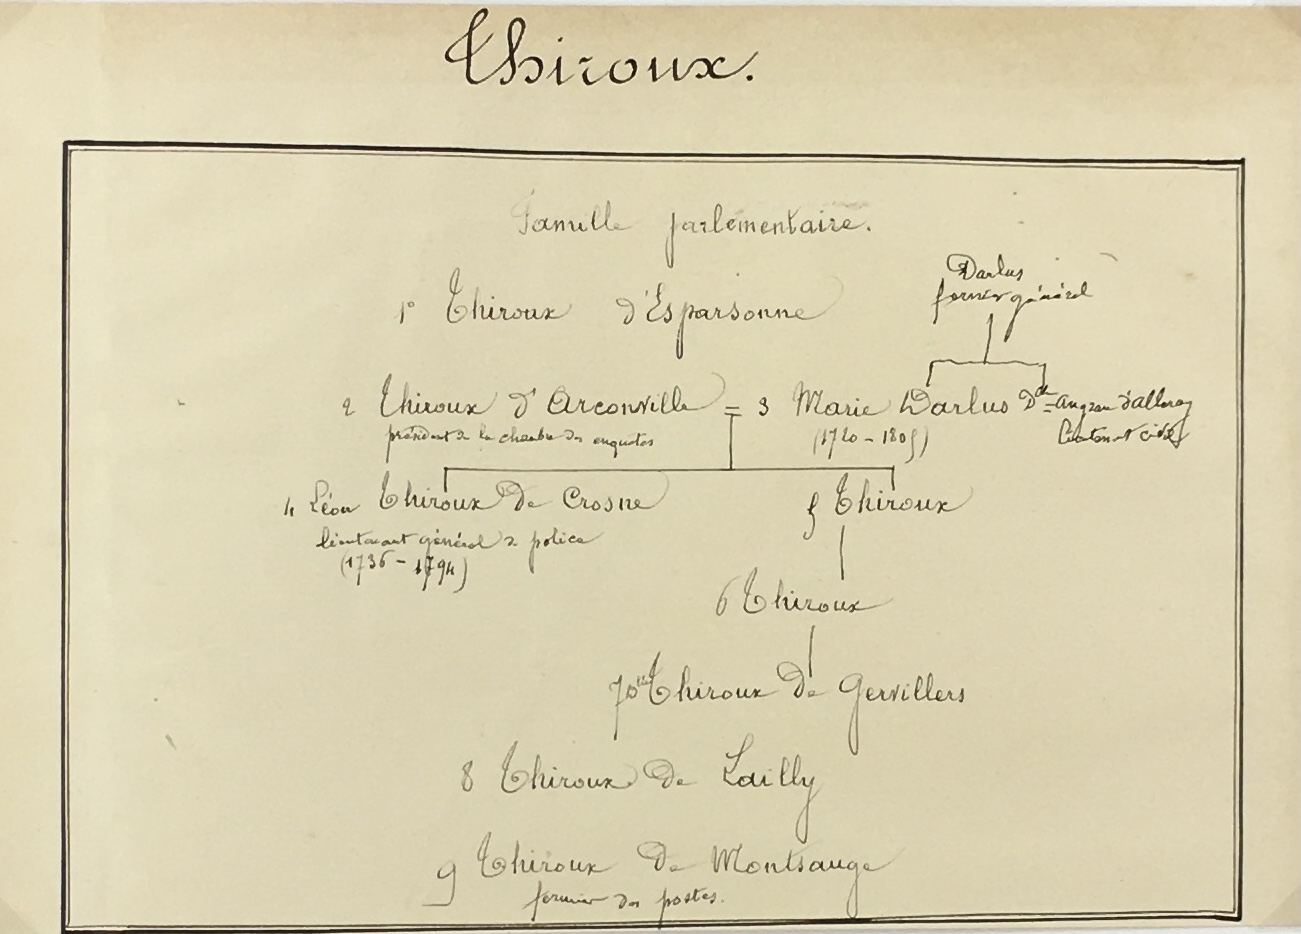 Thiroux.
Famille parlementaire.
Darlus
fermier général
1° Thiroux d'Esparsonne
2 Thiroux d'Arconville = 3 Marie Darlus Dlle = Angran d'alleray
président de la chambre des enquetes
(1720 - 1805)
Lieutenant civil
4 Léon Thiroux De Crosne
5 Thiroux
lieutenant général de police
(1736 - 1794)
6 Thiroux
7 Thiroux De Gervillers
8 Thiroux De Lailly
9 Thiroux De Montsauge
fermier des postes.